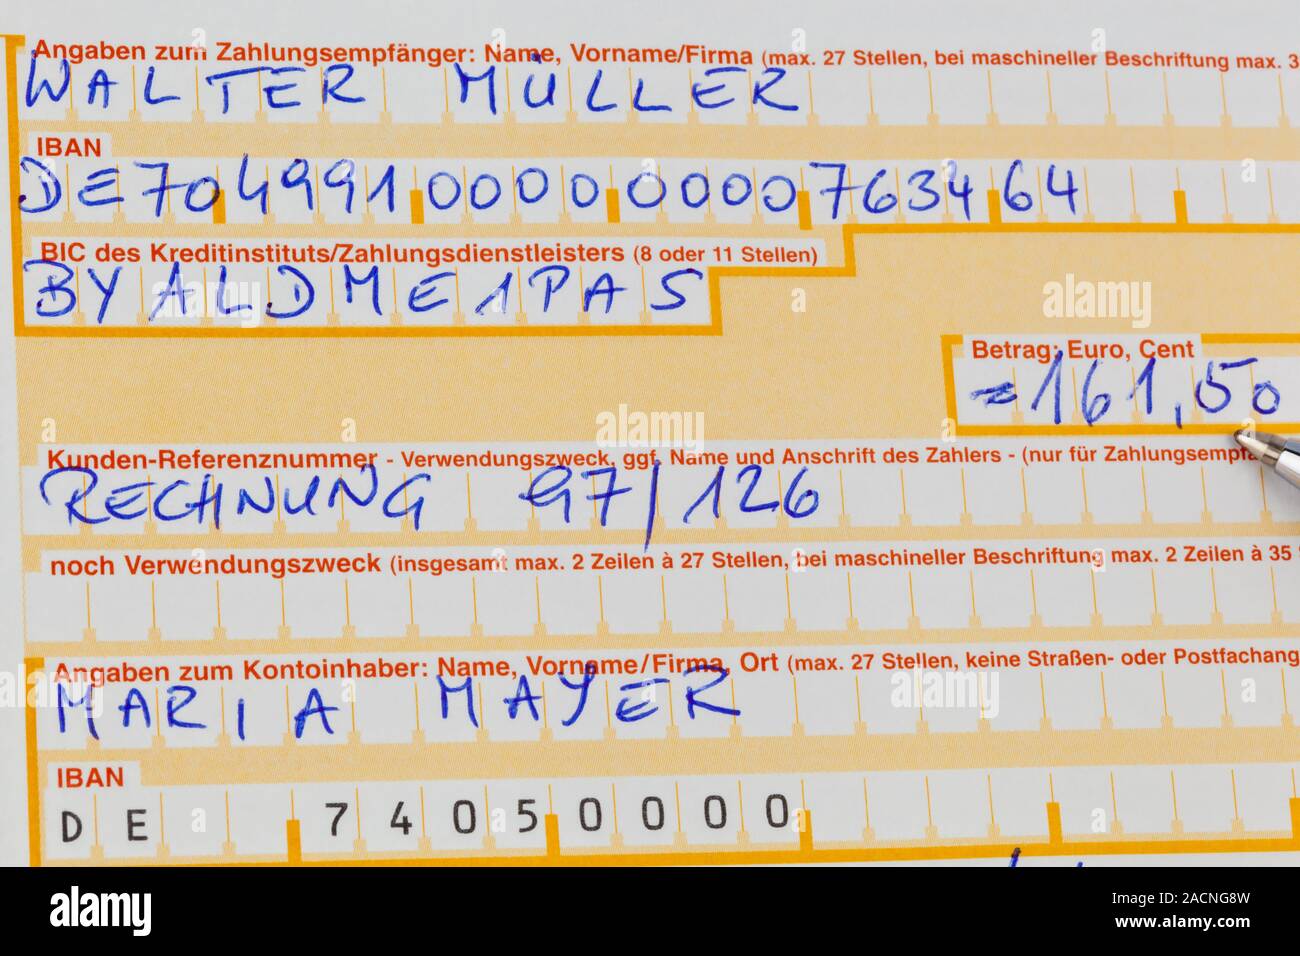 Angaben zum Zahlungsempfänger: Name, Vorname/Firma (max. 27 Stellen, bei maschineller Beschriftung max. 3
WALTER MÜLLER
IBAN
DE70499100000000763464 64
BIC des Kreditinstituts/Zahlungsdienstleisters (8 oder 11 Stellen)
BYALDME1PAS
Betrag: Euro, Cent
=161,50
Kunden-Referenznummer - Verwendungszweck, ggf. Name und Anschrift des Zahlers - (nur für Zahlungsempfä
RECHNUNG 97/126
noch Verwendungszweck (insgesamt max. 2 Zeilen à 27 Stellen, bei maschineller Beschriftung max. 2 Zeilen à 35
Angaben zum Kontoinhaber: Name, Vorname/Firma, Ort (max. 27 Stellen, keine Straßen- oder Postfachang
MARIA MAYER
IBAN
DE 74050000
alamy
Image ID: 2ACNG8W
www.alamy.com